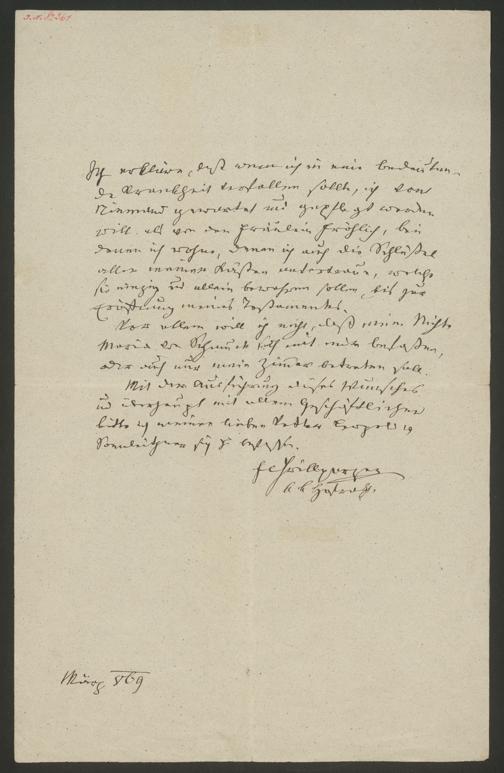 I. N. Nr. 361
Ich erkläre, daß wenn ich in eine bedeuten-
de Krankheit verfallen sollte, ich von
Niemand gewartet und gepflegt werden
will als von den Fräulein Fröhlich, bei
denen ich wohne, denen ich auch die Schlüßel
aller meiner Kästen anvertraue, welche
sie einzig und allein bewahren sollen, bis zur
Eröffnung meines Testamentes.
Vor allem will ich nicht, daß meine Nichte
Maria von sich mit mir befaßen,
oder auch nur mein Zimmer betreten soll.
Mit der Ausführung dieses Wunsches
und überhaupt mit allem Geschäftlichen
bitte ich meinen lieben Vetter Leopold
Sonnleithner sich zu befassen.
Fr Grillparzer
k k Hofrath.
März 869